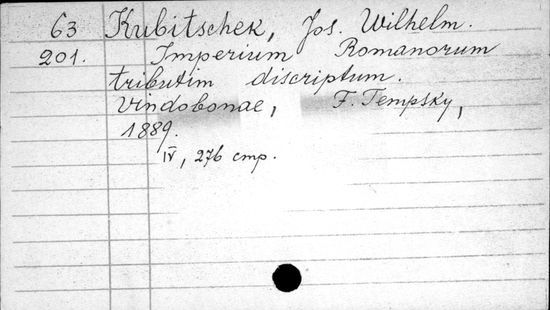 63 Kubitschek, Jos. Wilhelm.
201. Imperium Romanorum
tributim discriptum.
Vindobonae, F. Tempsky,
1889.
IV, 276 cmp.